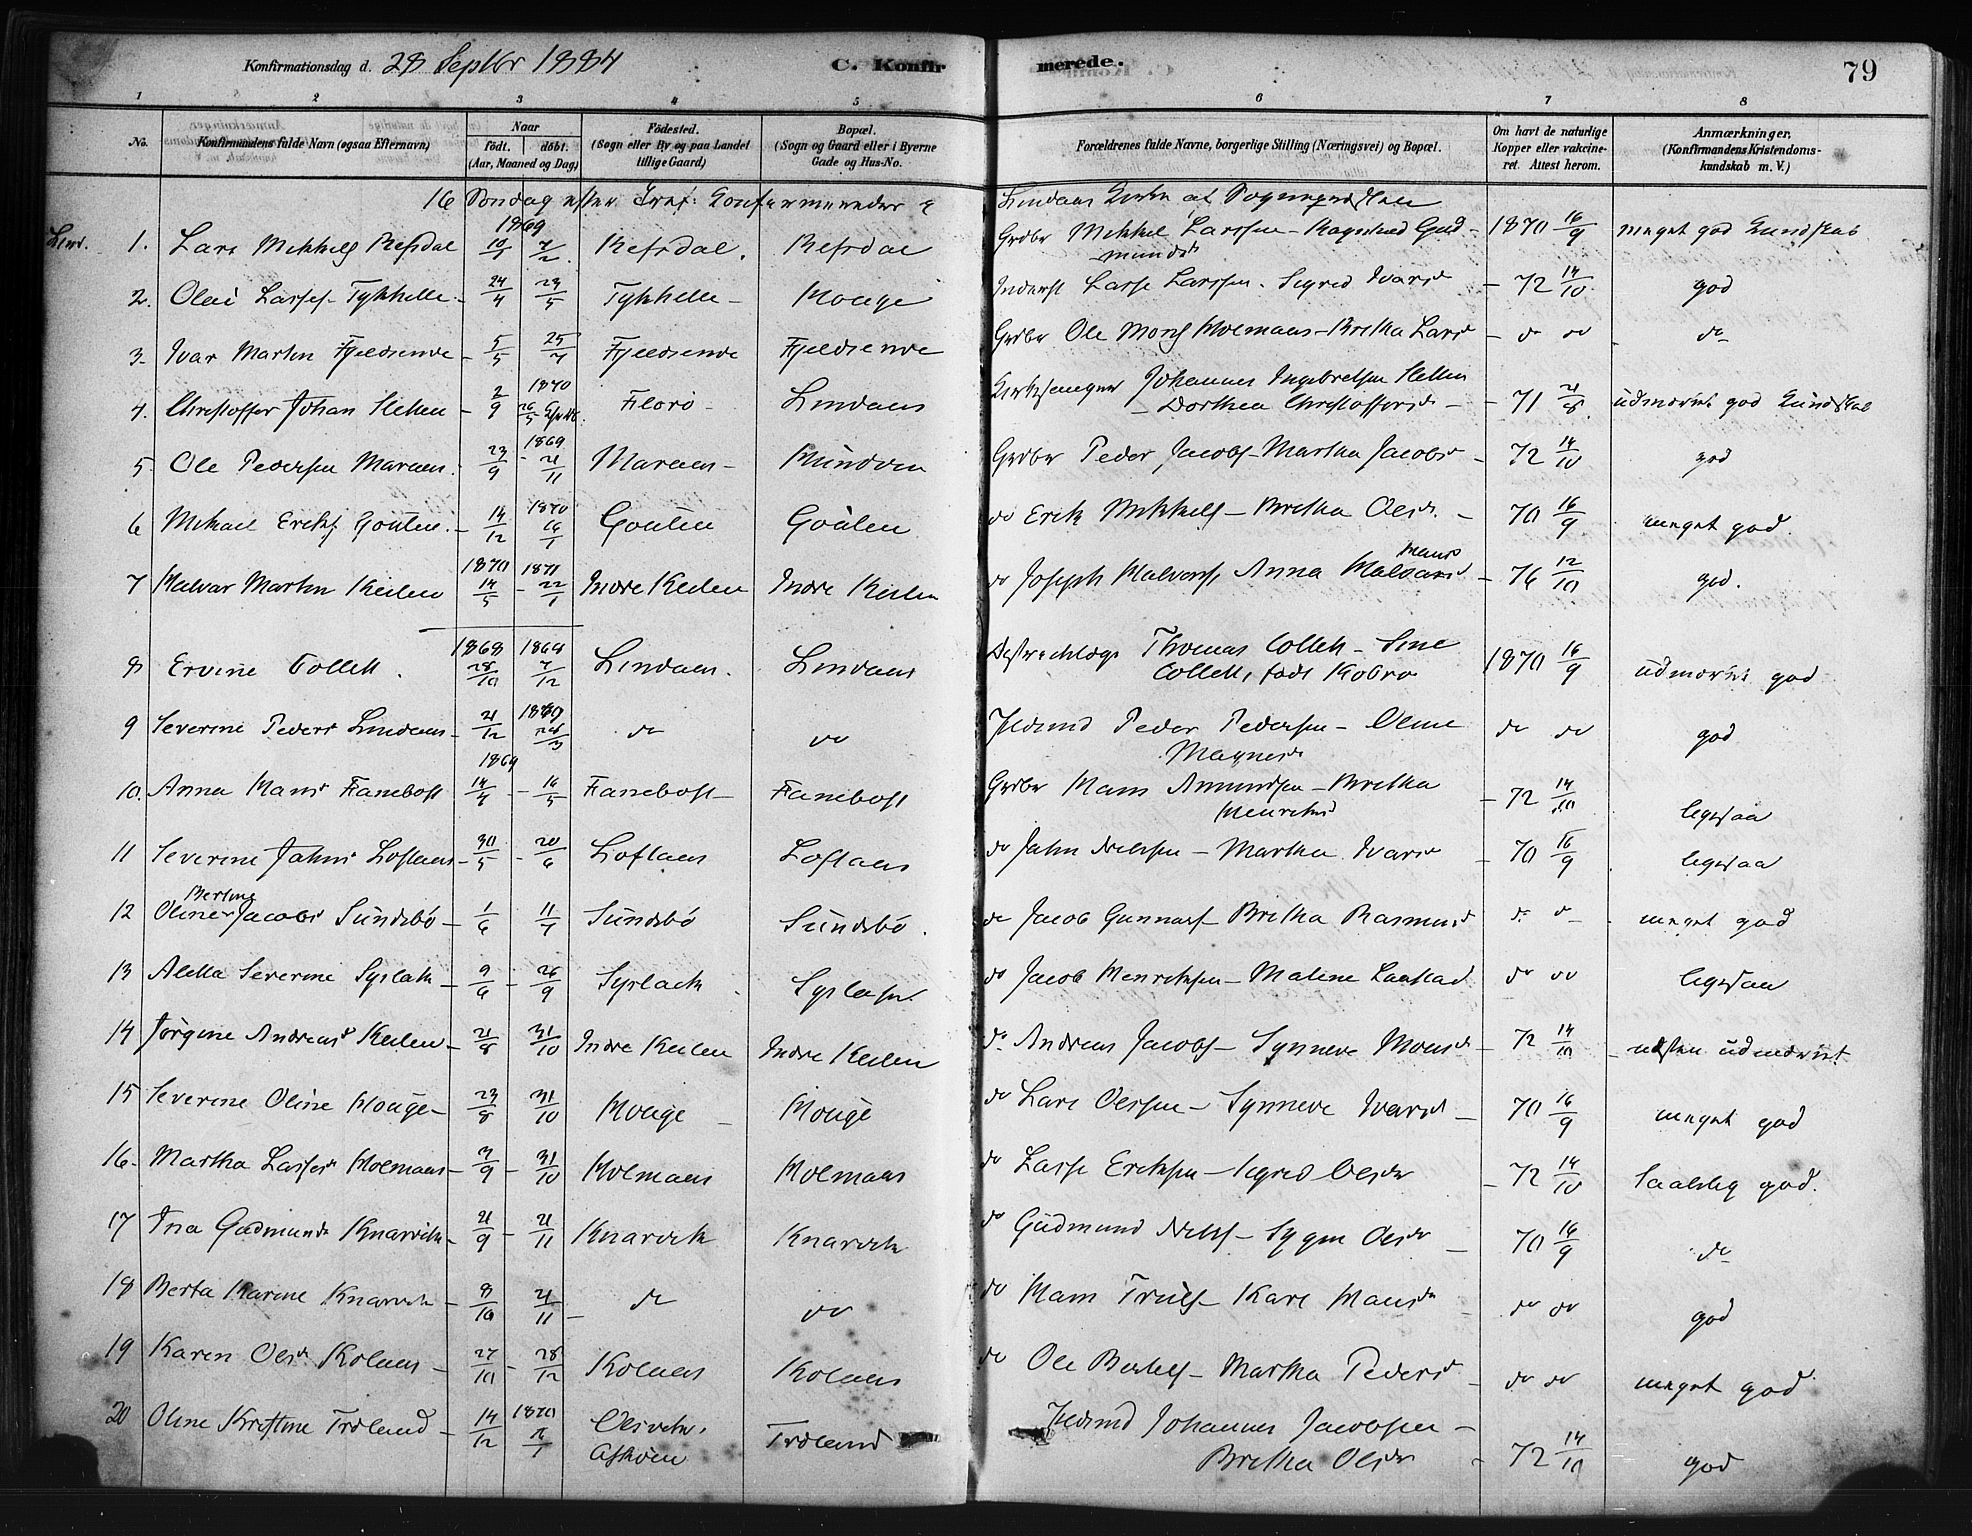 Konfirmationsdag d. 28 Septbr 1884 C. Konfirmerede. 79
1 2 3 4 5 6 7 8
No. Konfirmandens fulde Navn (ogsaa Efternavn) Naar født. døbt. (Aar, Maaned og Dag) Fødested. (Sogn eller By og paa Landet tillige Gaard) Bopæl. (Sogn og Gaard eller i Byerne Gade og Hus-No. Forældrenes fulde Navne, borgerlige Stilling (Næringsvei) og Bopæl. Om havt de naturlige Kopper eller vakcineret. Attest herom. Anmærkninger, (Konfirmandens Kristendomskundskab m. V.)
16 Søndag efter Tref: Konfirmereder i Lindaas Kirke af Sognepræsten
1869
Lind. 1. Lars Mikkels Refsdal 10/1 7/2 Refsdal. Refsdal Grdbr Mikkel Larssen - Ragnhild Gudmundsd 1870 16/9 meget god Kundskab
2. Olai Lasses Tykkelle 24/4 23/5 Tykkelle Houge Inderst Lasse Larssen. Sigrid Ivarsd 72 14/10 god
3. Ivar Martin Fjeldsende 5/5 25/7 Fjeldsende Fjeldsende Grdbr Ole Mons Holmaas - Britha Larsd do do do
4. Christoffer Johan Hellen 2/9 1870 26/5 Florø Lindaas Kirkesanger Johannes Ingebretsen Hellen - Dorthea Christoffersd 71 21/8 udmærket god Kundskab
5. Ole Pedersen Maraas 23/9 1869 21/11 Maraas Mundal Grdbr Peder Jacobs - Martha Jacobsd 72 14/10 god
6 Mikael Eriks Goulen 14/12 1870 16/1 Goulen Goulen do Erik Mikkels - Britha Olsd. 70 16/9 meget god.
7 Halvar Martin Keilen 1870 14/5 1871 22/1 Indre Keilen Indre Keilen do Joseph Halvors, Anna Mansd 76 12/10 god.
8 Ervine Collett 1868 28/10 1868 7/12 Lindaas. Lindaas Distriktslæge Thomas Collett - Sine Collett, født Kobro 1870 16/9 udmærket god
9 Severine Peders Lindaas 21/12 28/3 do do Huusmd Peder Pedersen - Oline Magnesd do do god
1869
10. Anna Mansd Fanebost 14/4 16/5 Fanebost Fanebost Grdbr Mans Amundsen - Britha Henriksd 72 14/10 ligesaa
11 Severine Jahns Loftaas 30/5 20/6 Loftaas Loftaas do Jahn Nielsen - Martha Ivarsd 70 16/9 ligesaa
12 Oline Bertine Jacobs Sundsbø 1/6 11/7 Sundsbø Sundsbø. do Jacob Gunnars - Britha Rasmusd do do meget god
13 Aletta Severine Syslak 9/6 26/9 Syslak Syslak do Jacob Henriksen - Maline Laustad do do ligesaa
14 Jørgine Andreasd Keilen 21/8 31/10 Indre Keilen Indre Keilen do Andreas Jacobs - Synneve Monsd 72 14/10 næsten udmærket
15 Severine Oline Houge 23/8 31/10 Houge Houge do Lars Olssen - Synneve Ivarsd 70 16/9 meget god
16. Martha Lassesd Holmaas 3/9 31/10 Holmaas Holmaas do Lasse Eriksen - Sigrid Olsdr 72 14/10 saavidt god.
17 Ina Gudmunds Knarvik 21/9 21/11 Knarvik Knarvik do Gudmund Niels - Sygni Olsdr 70 16/9 do
18 Berta Karine Knarvik 8/10 21/11 do do do Mans Truls - Kari Mansdr do do god
19 Karen Olsd. Kolaas 27/10 28/12 Kolaas Kolaas do Ole Bertels - Martha Pedersd do do meget god
20 Oline Kristine Troland 14/12 1870 Olsvik. Askøen Troland Huusmd Johannes Jacobsen - Britha Olsdr 72 14/10 god